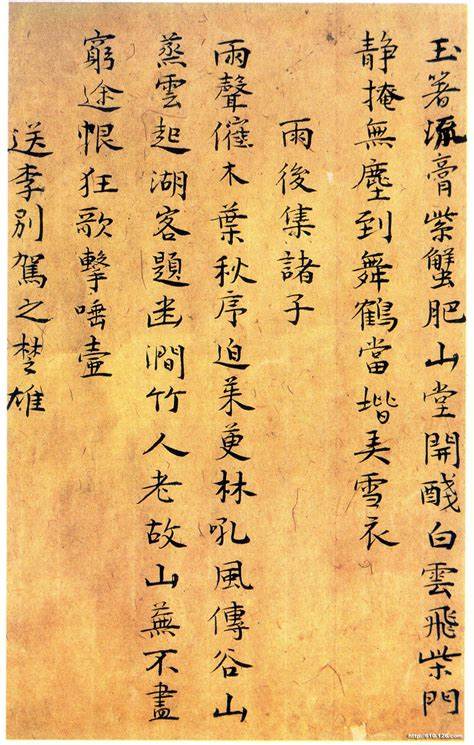 玉箸流膏紫蟹肥山堂開醆白雲飛柴門
静掩無塵到舞鶴當堦弄雪衣
雨後集諸子
雨聲催木葉秋序迫茱萸林吼風傳谷山
蒸雲起湖客題幽澗竹人老故山蕪不盡
窮途恨狂歌擊唾壺
送李別駕之楚雄